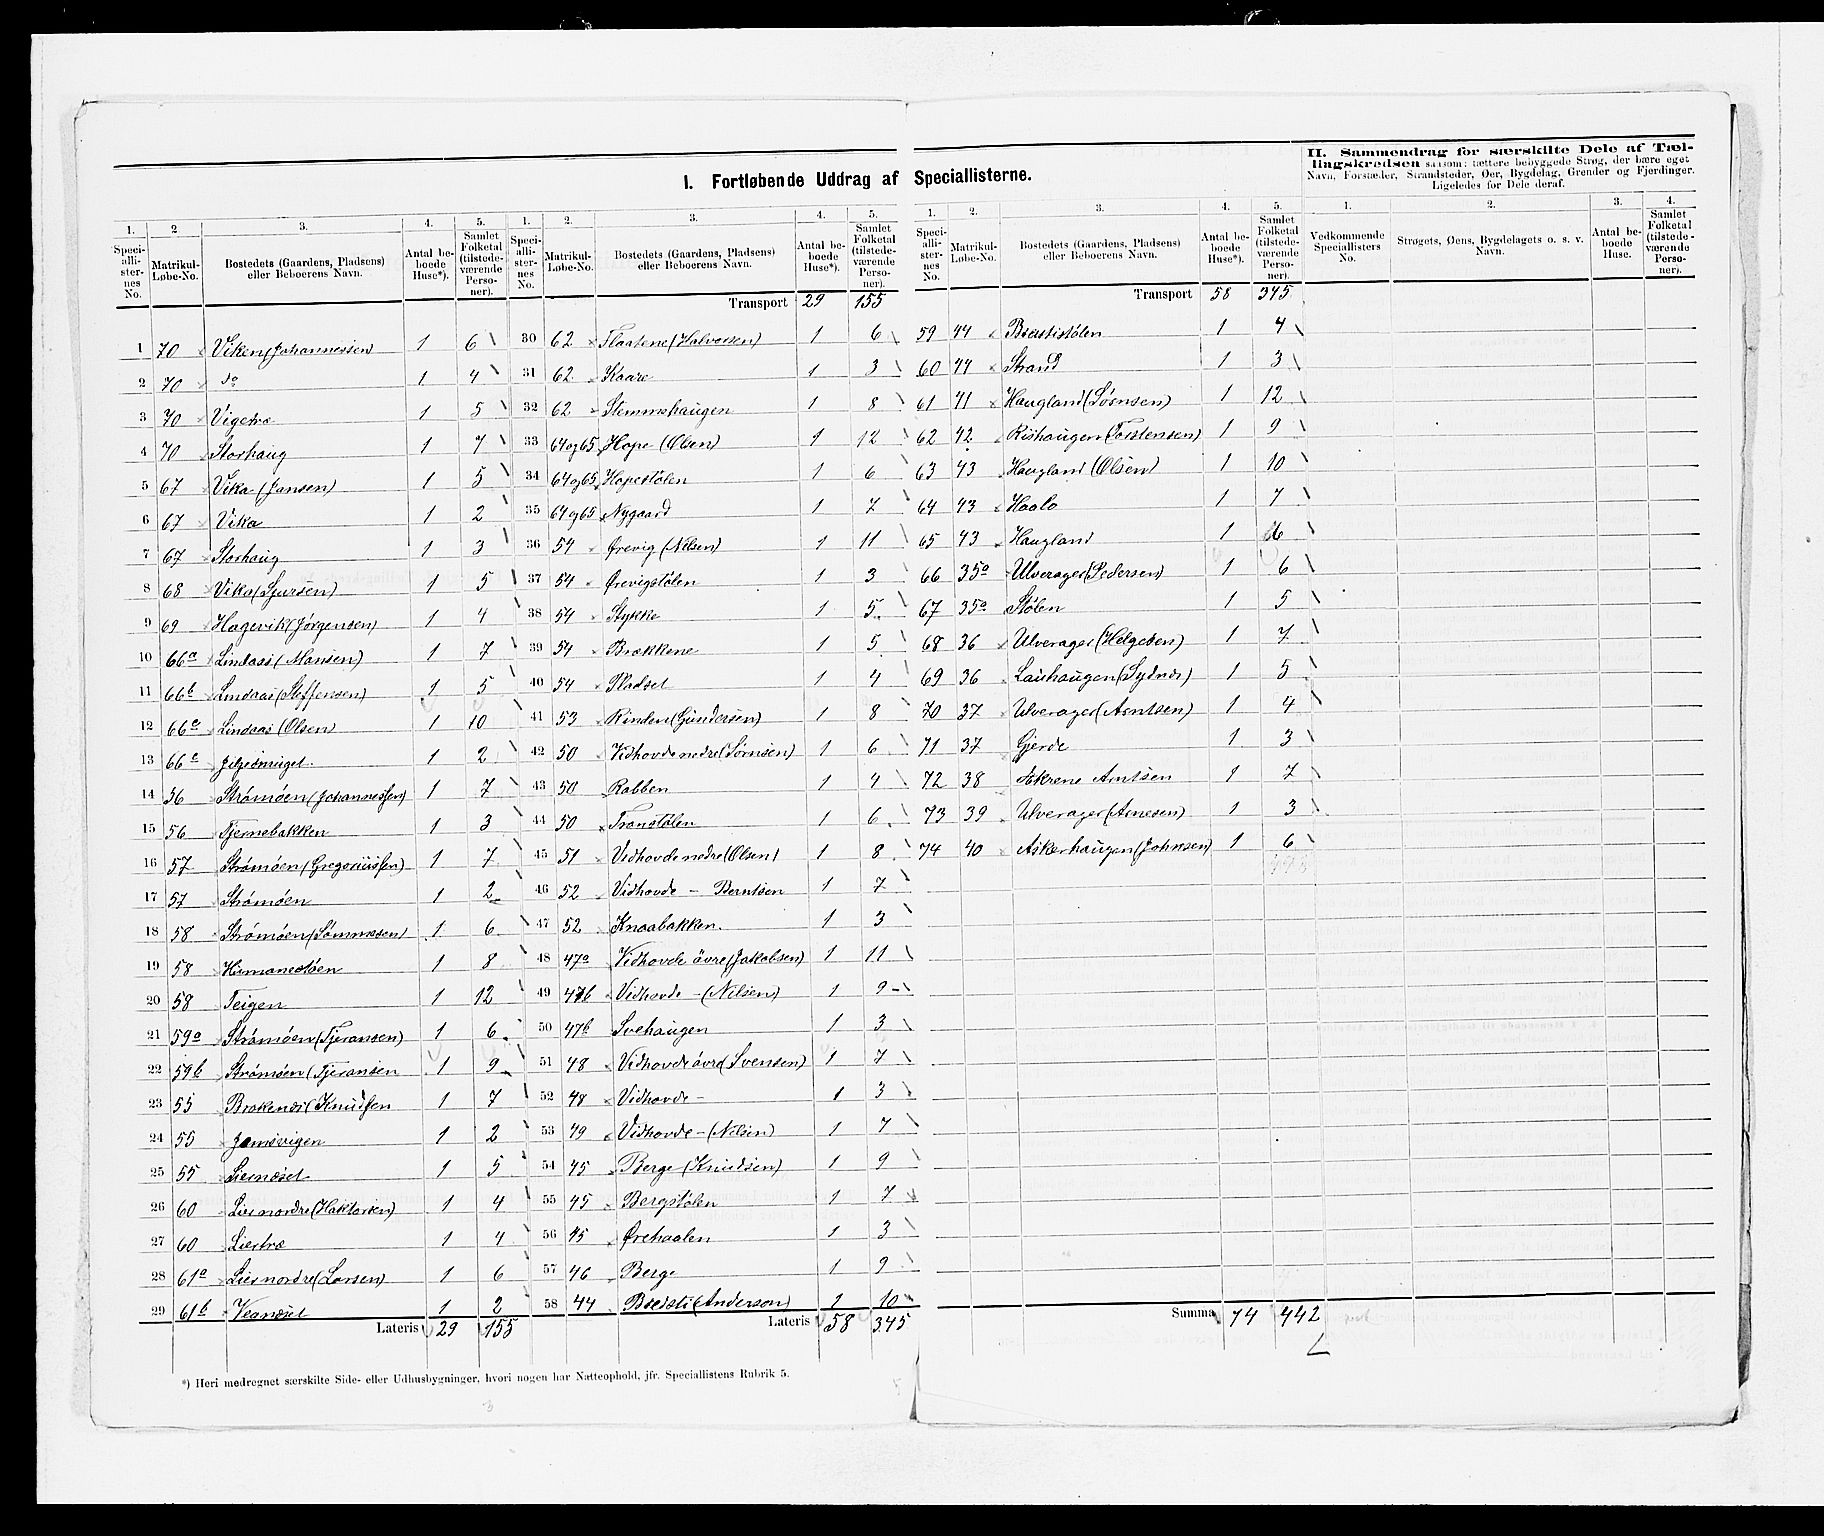 I. Fortløbende Uddrag af Speciallisterne.
II. Sammendrag for særskilte Dele af Tæl-
lingskredsen saasom: tættere bebyggede Strøg, der bære eget
Navn, Forstæder, Strandsteder, Øer, Bygdelag, Grender og Fjerdinger.
Ligeledes for Dele deraf.
1. 2 3. 4. 5.
Speciallisternes No. Matrikul-Løbe-No. Bostedets (Gaardens, Pladsens) eller Beboerens Navn. Antal beboede Huse*). Samlet Folketal (tilstedeværende Personer).
1 70 Viken (Johannessen) 1 6
2 70 do 1 4
3 70 Vigetræ 1 5
4 70 Storhaug 1 7
5 67 Vika (Jansen) 1 5
6 67 Vika 1 2
7 67 Storhaug 1 3
8 68 Vika (Sjursen) 1 5
9 69 Hagevik (Jørgensen) 1 4
10 66a Lindaas (Hansen) 1 7
11 66b Lindaas (Steffensen) 1 5
12 66c Lindaas (Olsen) 1 10
13 66c 1 2
14 56 Strømøen (Johannessen) 1 7
15 56 Tjernebakken 1 3
16 57 Strømøen (Gregoriussen) 1 7
17 57 Strømøen 1 2
18 58 Strømøen 1 6
19 58 1 8
20 58 Teigen 1 12
21 59a Strømøen (Tjeransen) 1 6
22 59b Strømøen (Tjeransen 1 9
23 55 Brakenæs (Knudsen 1 7
24 55 Jamsvigen 1 2
25 55 Liernæset 1 5
26 60 Lier nordre 1 4
27 60 Liertræ 1 4
28 61a Lier nordre (Larsen) 1 6
29 61b Veanæset 1 2
Lateris 29 155
1. 2. 3. 4. 5.
Speciallisternes No. Matrikul-Løbe-No. Bostedets (Gaardens, Pladsens) eller Beboerens Navn. Antal beboede Huse*). Samlet Folketal (tilstedeværende Personer).
Transport 29 155
30 62 Flaatene (Halvorsen) 1 6
31 62 Kaare 1 3
32 62 Stemmehaugen 1 8
33 64og65 Hope (Olsen) 1 12
34 64og65 Hopestølen 1 6
35 64og65 Nygaard 1 7
36 54 Ørevig (Nilsen) 1 11
37 54 Ørevigstølen 1 3
38 54 Stykke 1 5
39 54 Brækkene 1 5
40 54 Pladset 1 4
41 53 Rinden (Gundersen) 1 8
42 50 Vidhovde nedre (Sørnsen) 1 6
43 50 Rabben 1 4
44 50 Transtølen 1 6
45 51 Vidhovde nedre (Olsen) 1 8
46 52 Vidhovde - Berntsen 1 7
47 52 Knaabakken. 1 3
48 47a Vidhovde övre (Jakobsen) 1 11
49 47b Vidhovde - (Nilsen) 1 9
50 47b Svehaugen 1 3
51 48 Vidhovde övre (Svensen) 1 7
52 48 Vidhovde - 1 3
53 49 Vidhovde - (Nilsen) 1 7
54 45 Berge (Knudsen) 1 9
55 45 Bergstølen 1 7
56 45 Ørehaalen 1 3
57 46 Berge 1 9
58 44 Breisti (Anderson) 1 10
Lateris 58 345
1. 2. 3. 4. 5.
Speciallisternes No. Matrikul-Løbe-No. Bostedets (Gaardens, Pladsens) eller Beboerens Navn. Antal beboede Huse*). Samlet Folketal (tilstedeværende Personer).
Transport 58 345
59 44 Breististølen 1 4
60 44 Strand 1 3
61 41 Haugland (Sørnsen) 1 12
62 42 Rishaugen (Torstensen) 1 9
63 43 Haugland (Olsen) 1 10
64 43 Haalo 1 7
65 43 Haugland 1 6
66 35a Ulverager (Pedersen) 1 6
67 35a Stølen 1 5
68 36 Ulverager (Helgesen) 1 7
69 36 Lauhaugen (Sydnes) 1 5
70 37 Ulverager (Arntsen) 1 4
71 37 Gjerde 1 3
72 38 Aekrene Arntsen 1 7
73 39 Ulverager (Arnesen) 1 3
74 40 Askerhaugen (Johnsen) 1 6
Summa 74 442
1. 2. 3. 4.
Vedkommende Speciallisters No. Strøgets, Øens, Bygdelagets o. s. v. Navn. Antal beboede Huse. Samlet Folketal (tilstedeværende Personer).
*) Heri medregnet særskilte Side- eller Udhusbygninger, hvori nogen har Natteophold, jfr. Speciallistens Rubrik 5.